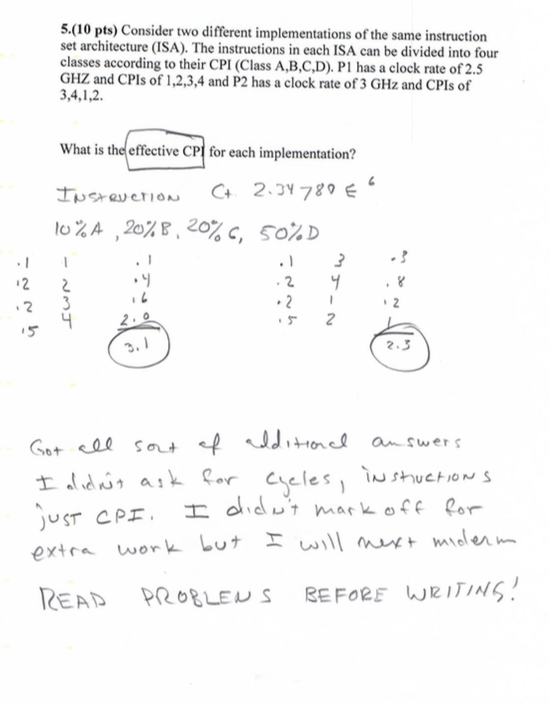 5.(10 pts) Consider two different implementations of the same instruction
set architecture (ISA). The instructions in each ISA can be divided into four
classes according to their CPI (Class A,B,C,D). P1 has a clock rate of 2.5
GHZ and CPIs of 1,2,3,4 and P2 has a clock rate of 3 GHz and CPIs of
3,4,1,2.
What is the effective CPI for each implementation?
INSTRUCTION Ct 2.34780 E 6
10%A, 20%B, 20% C, 50%D
.1 1 .1 .1 3 .3
.2 2 .4 .2 4 .8
.2 3 .6 .2 1 .2
.5 4 2.0 .5 2 1
3.1 2.3
Got all sort of additional answers
I didn't ask for cycles, instructions
just CPI. I didn't mark off for
extra work but I will next miderm
READ PROBLEMS BEFORE WRITING!